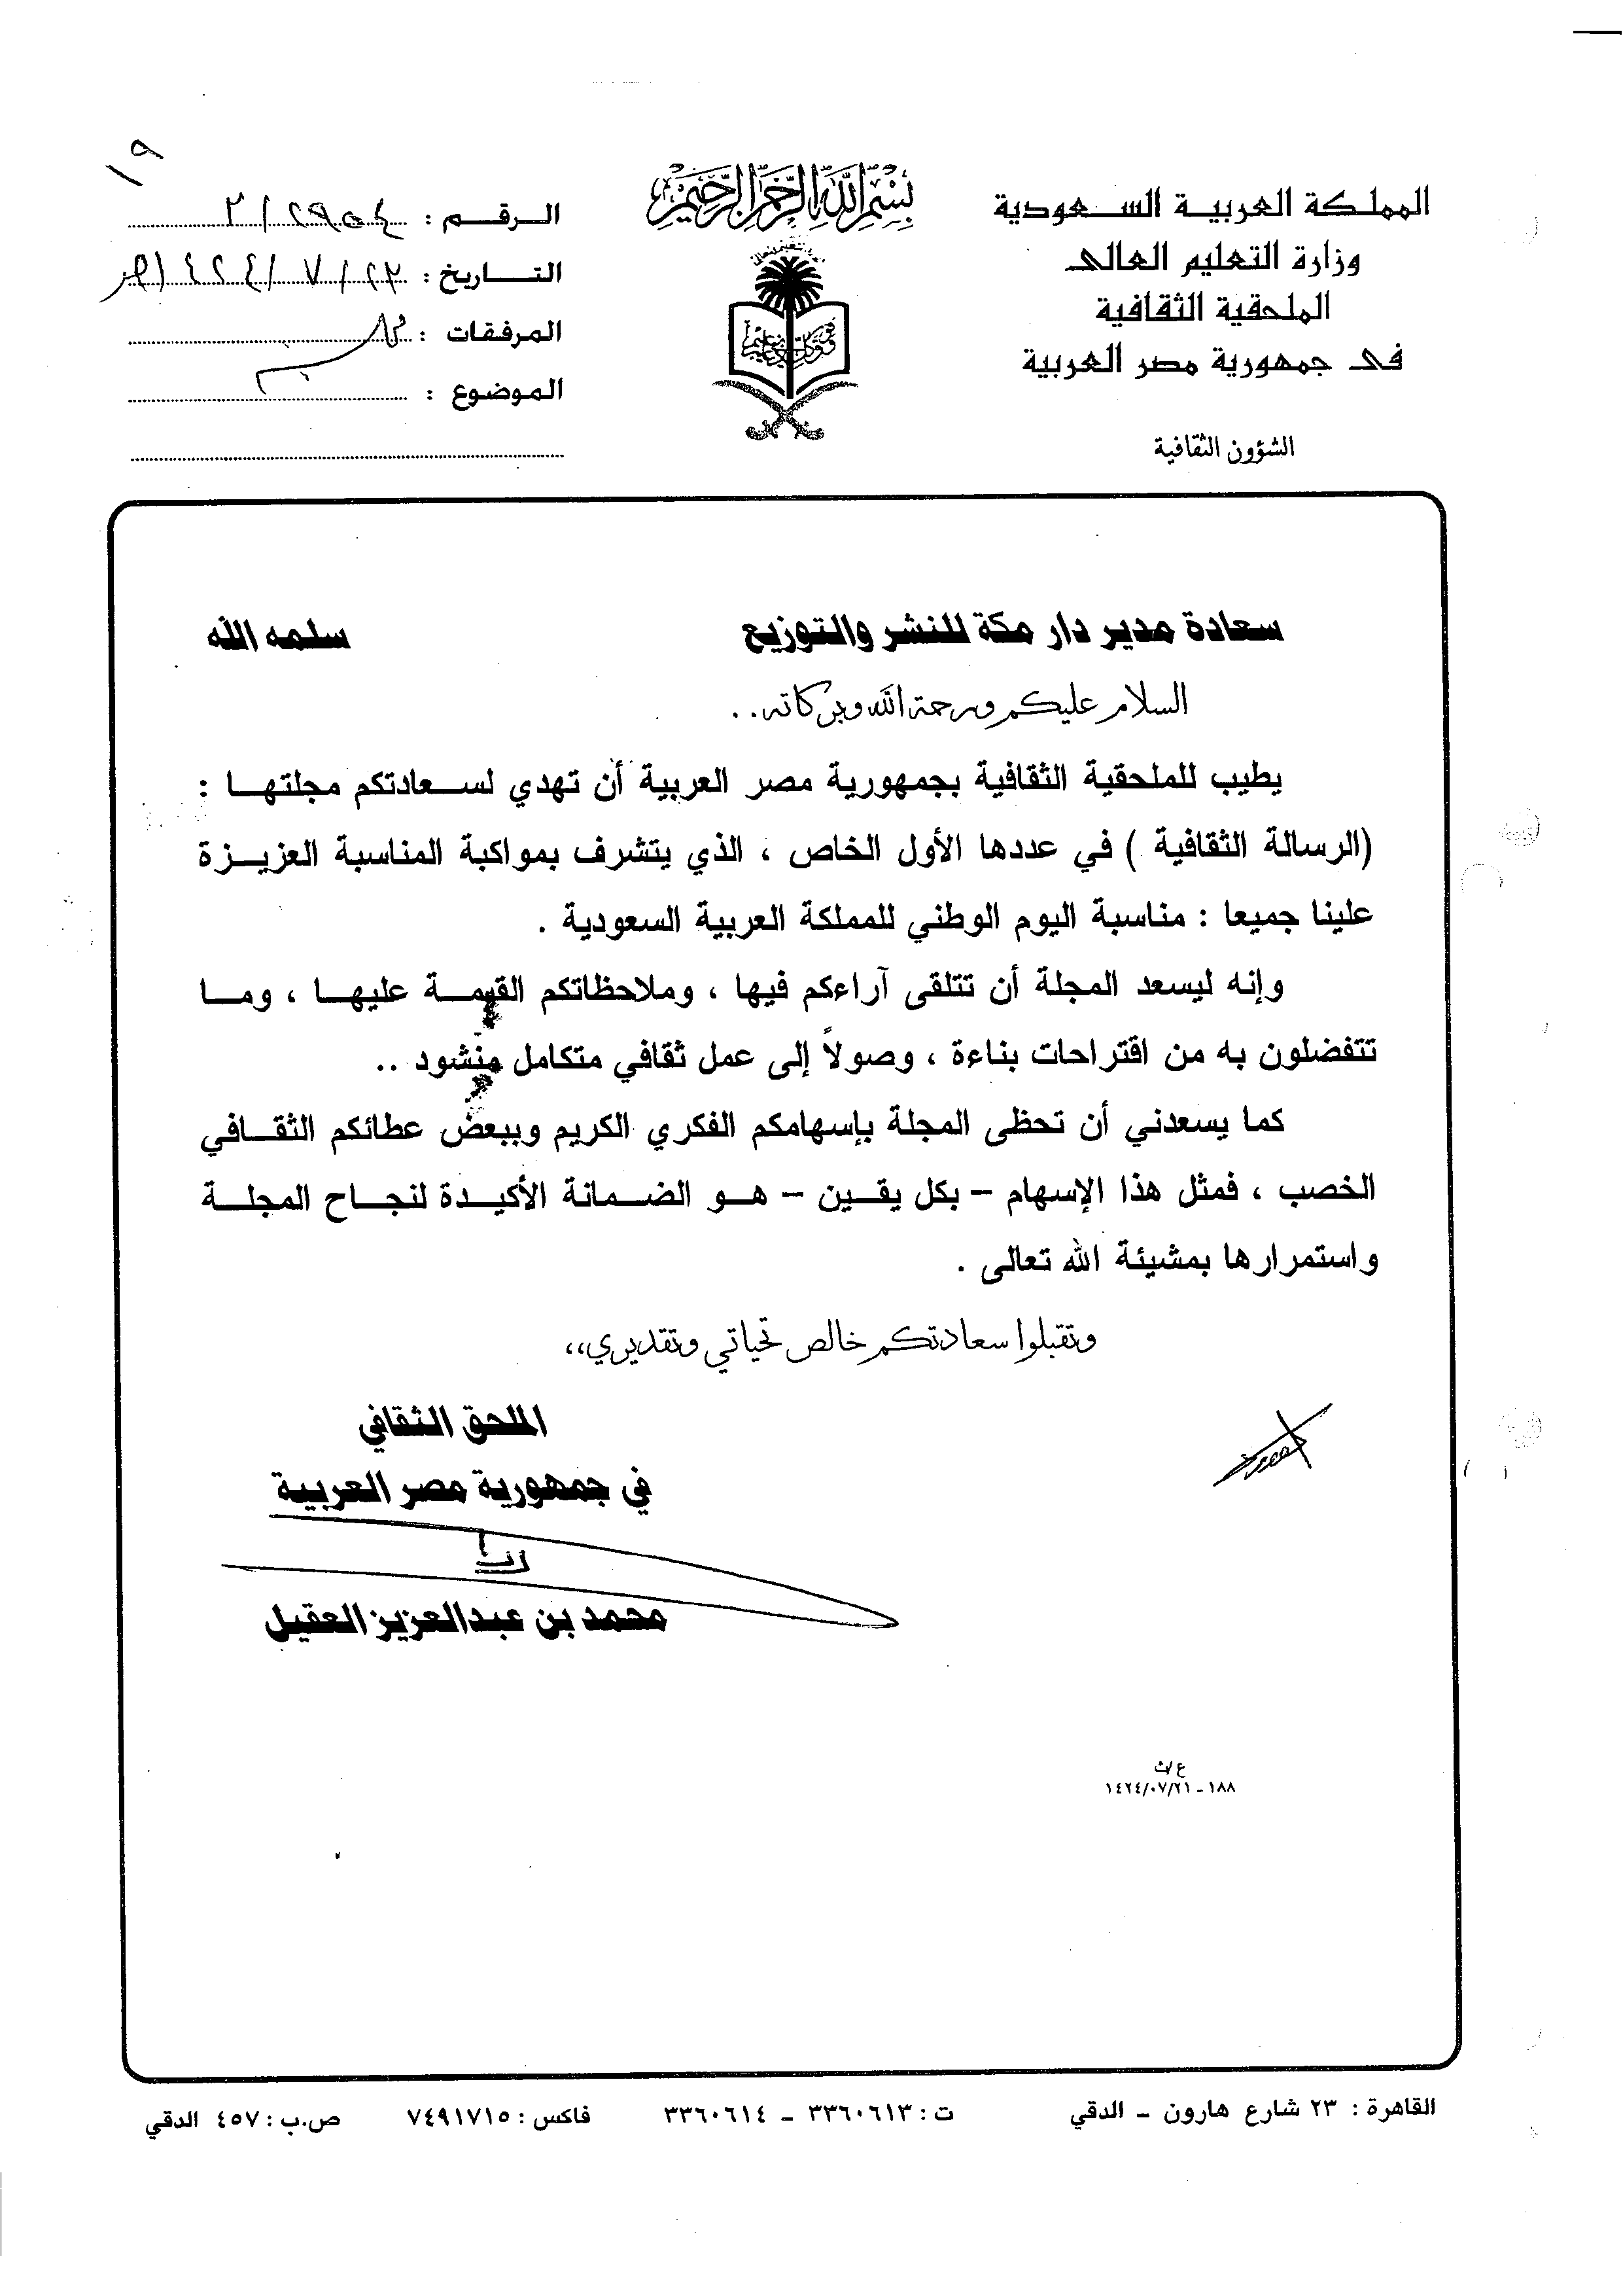 ١٩
بسم الله الرحمن الرحيم
المملكة العربية السعودية
وزارة التعليم العالى
الملحقية الثقافية
فى جمهورية مصر العربية
الشؤون الثقافية
الرقم : ٢/٢٩٥٤
التاريخ : ٢٢/٧/١٤٢٤هـ
المرفقات :
الموضوع :
وفوق كل ذي علم عليم
سعادة مدير دار مكة للنشر والتوزيع سلمه الله
السلام عليكم ورحمة الله وبركاته..
يطيب للملحقية الثقافية بجمهورية مصر العربية أن تهدي لسعادتكم مجلتها :
(الرسالة الثقافية ) في عددها الأول الخاص ، الذي يتشرف بمواكبة المناسبة العزيزة
علينا جميعا : مناسبة اليوم الوطني للمملكة العربية السعودية .
وإنه ليسعد المجلة أن تتلقى آراءكم فيها ، وملاحظاتكم القيمة عليها ، وما
تتفضلون به من اقتراحات بناءة ، وصولاً إلى عمل ثقافي متكامل منشود ..
كما يسعدني أن تحظى المجلة بإسهامكم الفكري الكريم وببعض عطائكم الثقافي
الخصب ، فمثل هذا الإسهام – بكل يقين – هو الضمانة الأكيدة لنجاح المجلة
واستمرارها بمشيئة الله تعالى .
وتقبلوا سعادتكم خالص تحياتي وتقديري،،
الملحق الثقافي
في جمهورية مصر العربية
محمد بن عبدالعزيز العقيل
ع/ث
١٨٨ - ١٤٢٤/٠٧/٢١
القاهرة : ٢٣ شارع هارون – الدقي ت : ٣٣٦٠٦١٣ – ٣٣٦٠٦١٤ فاكس : ٧٤٩١٧١٥ ص.ب : ٤٥٧ الدقي